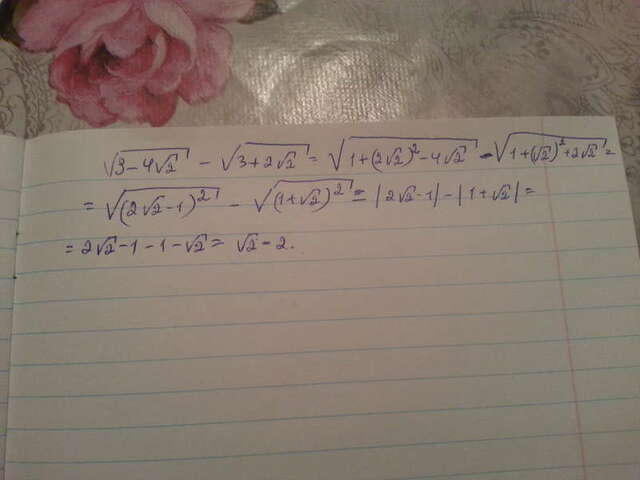 √9-4√2 - √3+2√2 = √1+(2√2)²-4√2 - √1+(√2)²+2√2 =
= √(2√2-1)² - √(1+√2)² = |2√2-1|-|1+√2|=
= 2√2-1-1-√2 = √2-2.